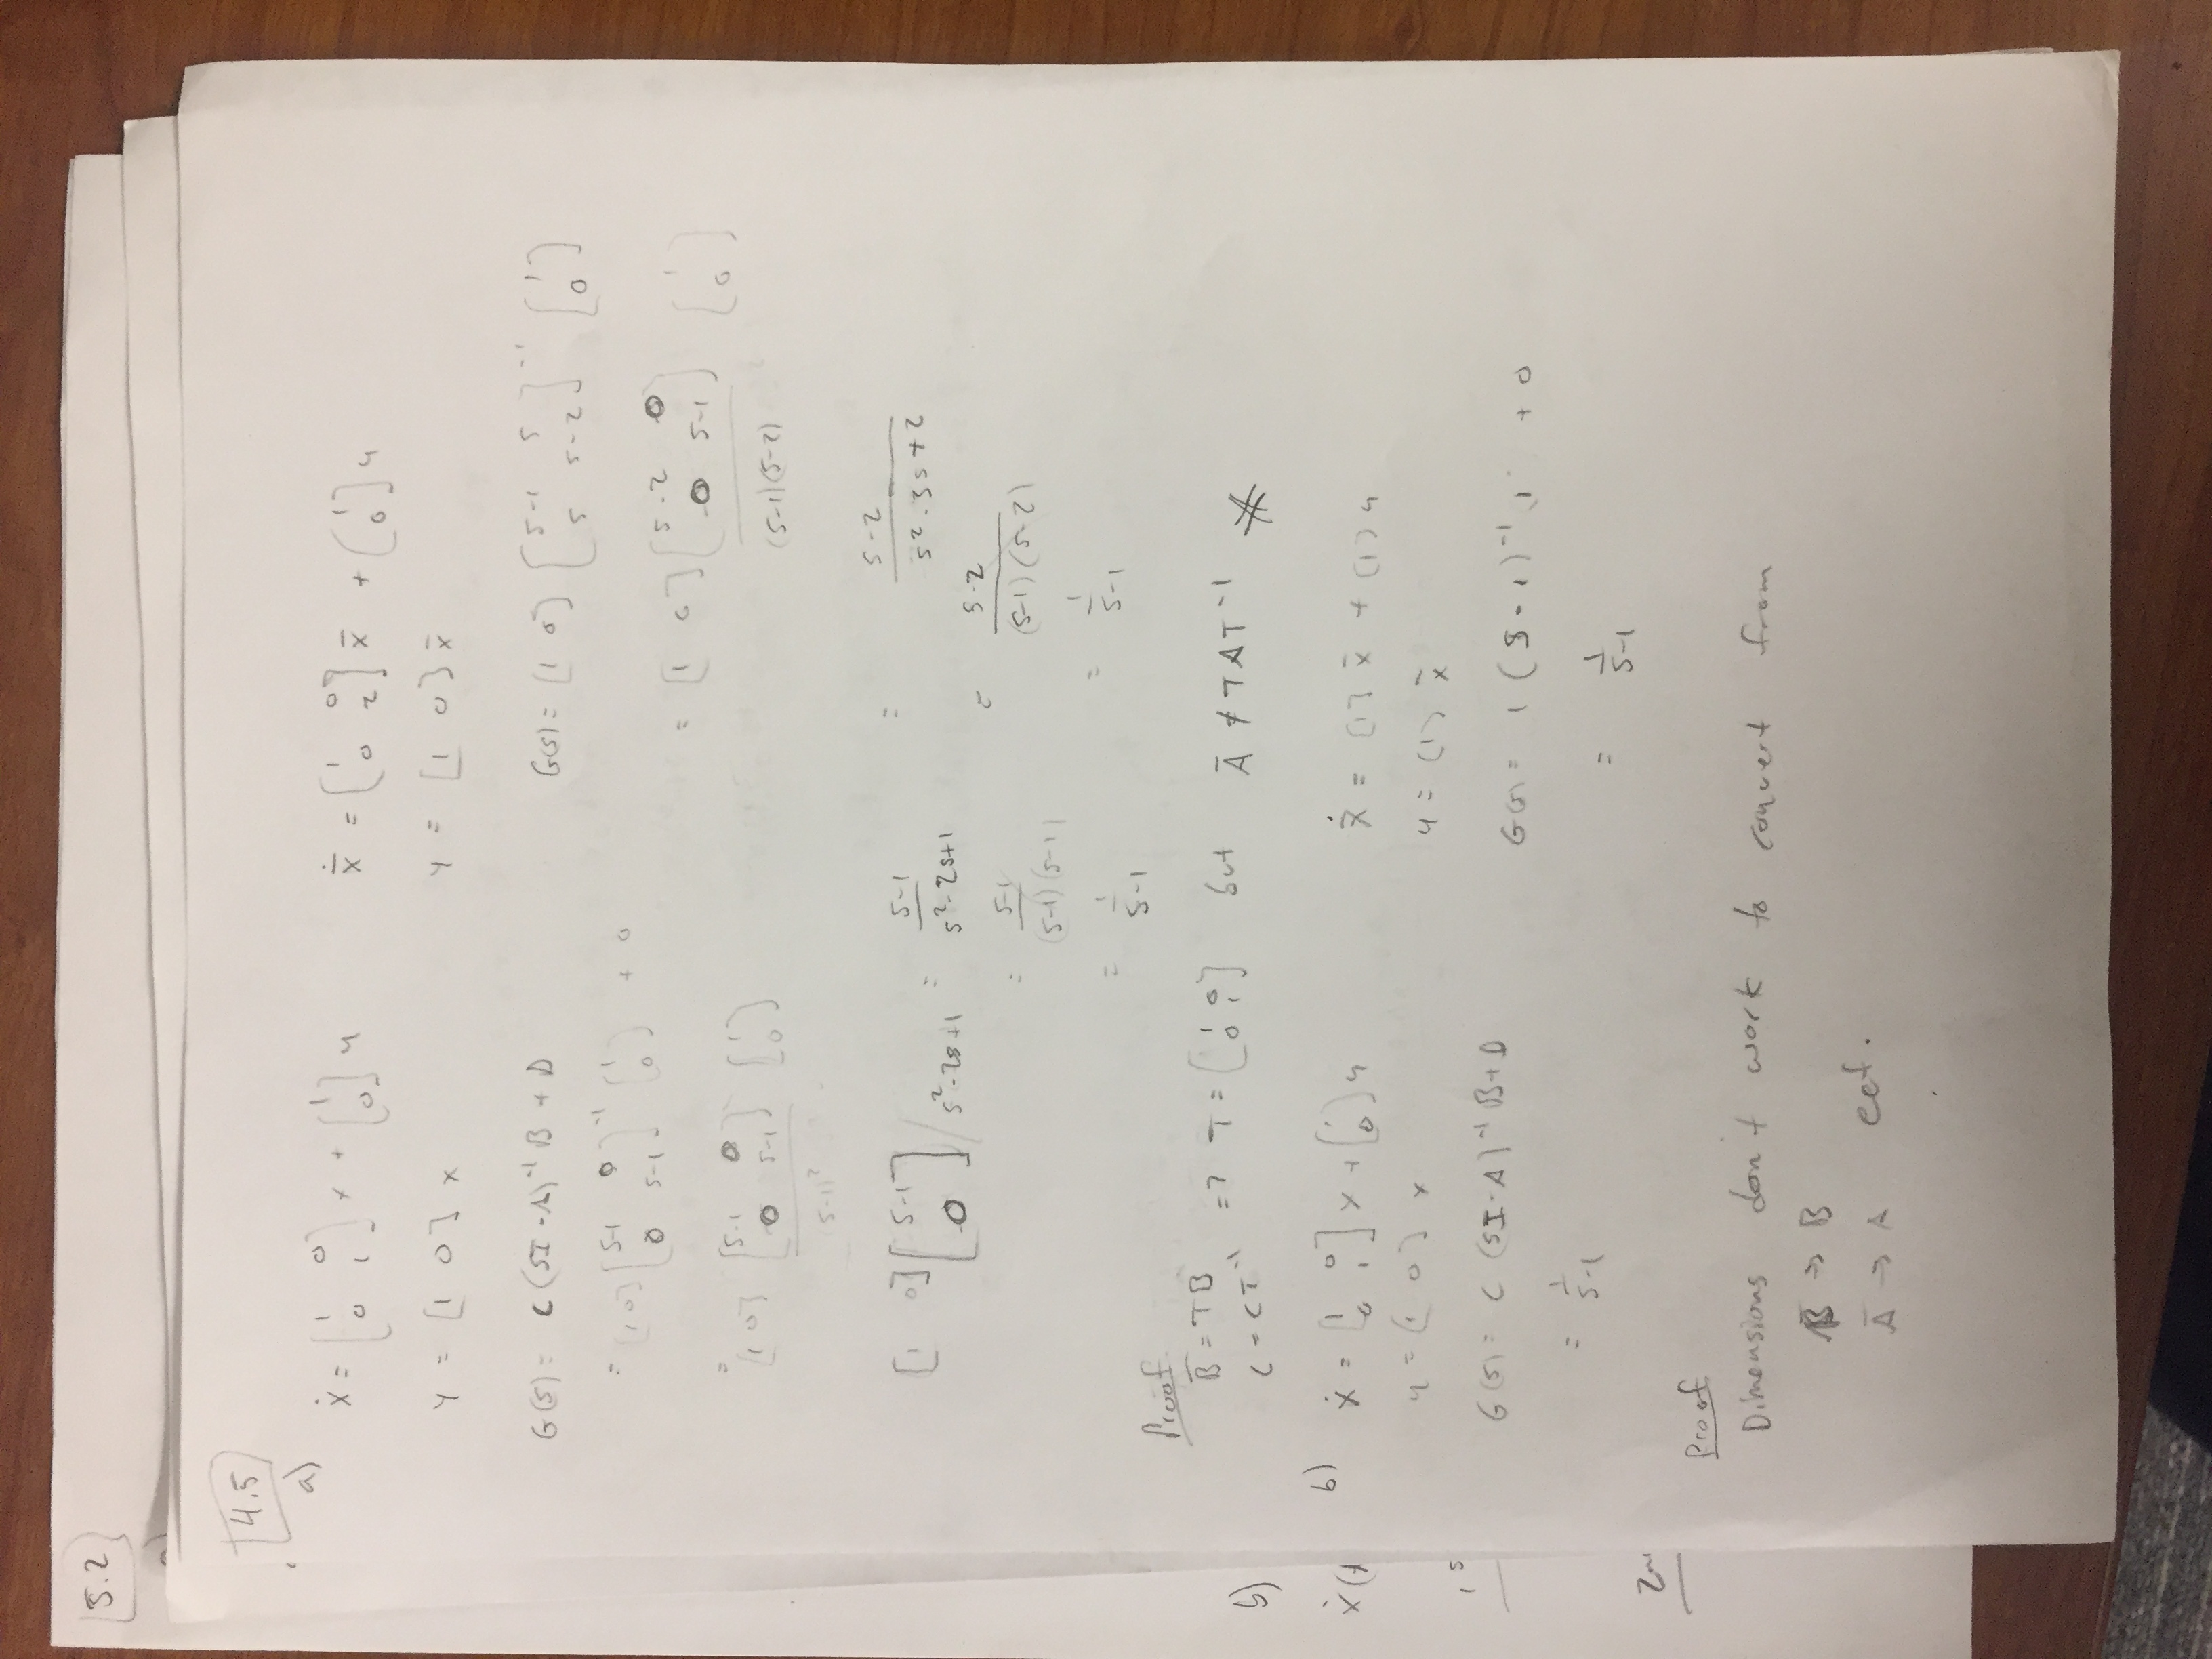 5.2
a)
4.5
a)
ẋ = [1 0; 0 1] x + [1; 0] u
y = [1 0] x
x̄̇ = [1 0; 0 2] x̄ + [1; 0] u
y = [1 0] x̄
G(s) = C (sI - A)⁻¹ B + D
= [1 0] [s-1 0; 0 s-1]⁻¹ [1; 0] + 0
= [1 0] [s-1 0; 0 s-1] / (s-1)² [1; 0]
[1 0] [s-1; 0] / s²-2s+1 = s-1 / s²-2s+1
= s-1 / (s-1)(s-1)
= 1 / s-1
G(s) = [1 0] [s-1 s; s s-2]⁻¹ [1; 0]
= [1 0] [s-2 0; 0 s-1] / (s-1)(s-2) [1; 0]
= s-2 / s²-3s+2
= s-2 / (s-1)(s-2)
= 1 / s-1
Proof
B̄ = TB
C = CT⁻¹
=> T = [1 0; 0 1] but Ā ≠ TAT⁻¹ ※
b)
ẋ = [1 0; 0 1] x + [1; 0] u
y = [1 0] x
G(s) = C (sI - A)⁻¹ B + D
= 1 / s-1
ẋ = [1] x̄ + [1] u
y = [1] x̄
G(s) = 1 (s - 1)⁻¹ 1 + 0
= 1 / s-1
Proof
Dimensions don't work to convert from
B̄ → B
Ā → A ect.
b)
ẋ(